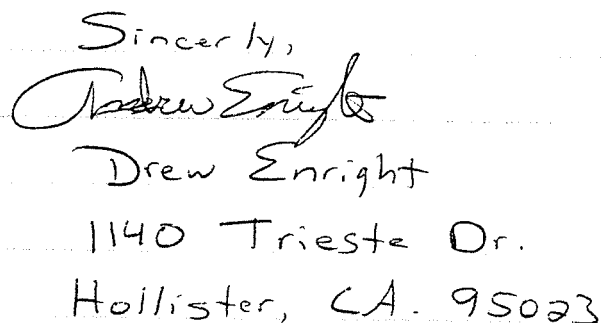 Sincerly,
Andrew Enright
Drew Enright
1140 Trieste Dr.
Hollister, CA. 95023